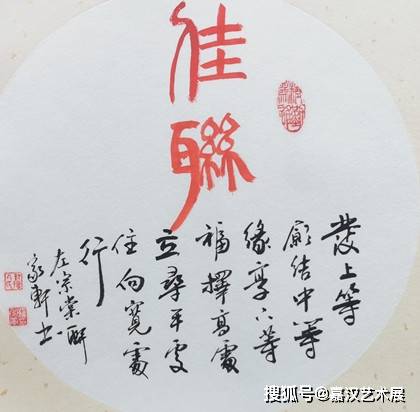 佳聯
發上等
願結中等
緣享下等
福擇高處
立尋平處
住向寬處
行
左宗棠聯
家軒书
搜狐号@嘉汉艺术展